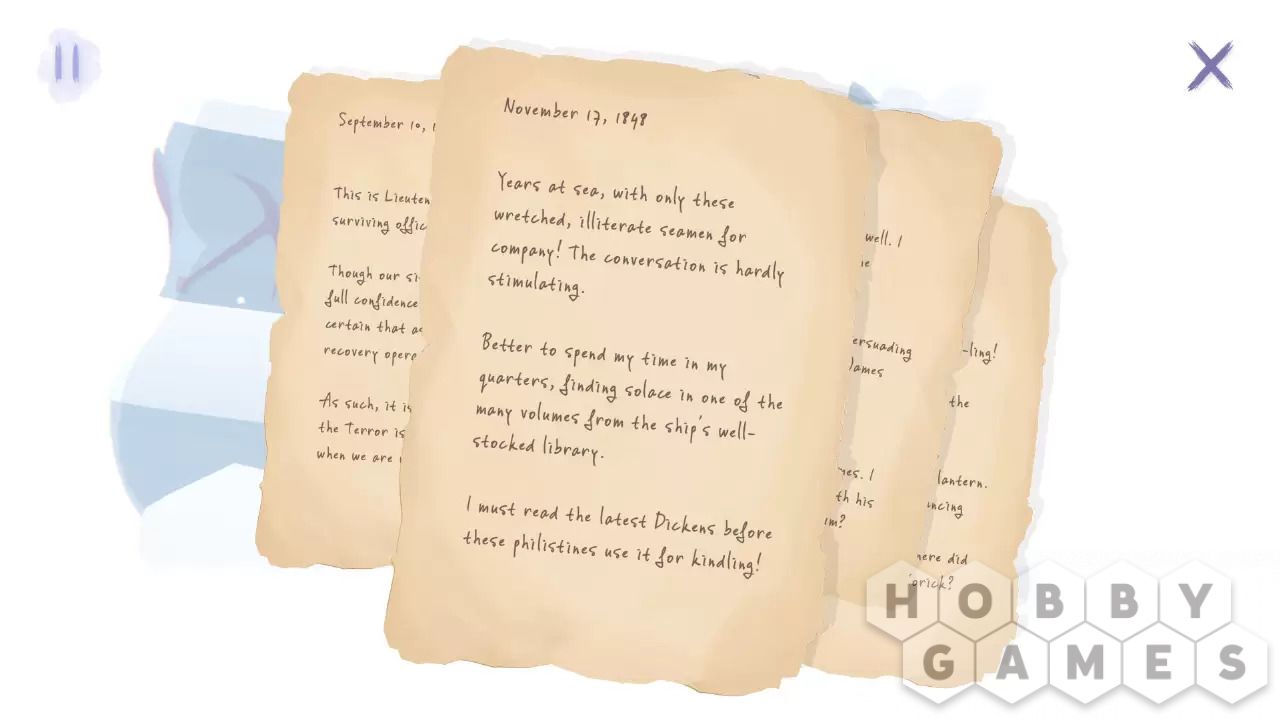 September 10, 1
This is Lieuten
surviving offic
Though our si
full confidence
certain that a
recovery opera
As such, it is
the Terror is
when we are
November 17, 1848
Years at sea, with only these
wretched, illiterate seamen for
company! The conversation is hardly
stimulating.
Better to spend my time in my
quarters, finding solace in one of the
many volumes from the ship's well-
stocked library.
I must read the latest Dickens before
these philistines use it for kindling!
well. I
ersuading
James
mes. I
th his
im?
-ling!
the
lantern.
ncing
here did
brick?
HOBBY
GAMES